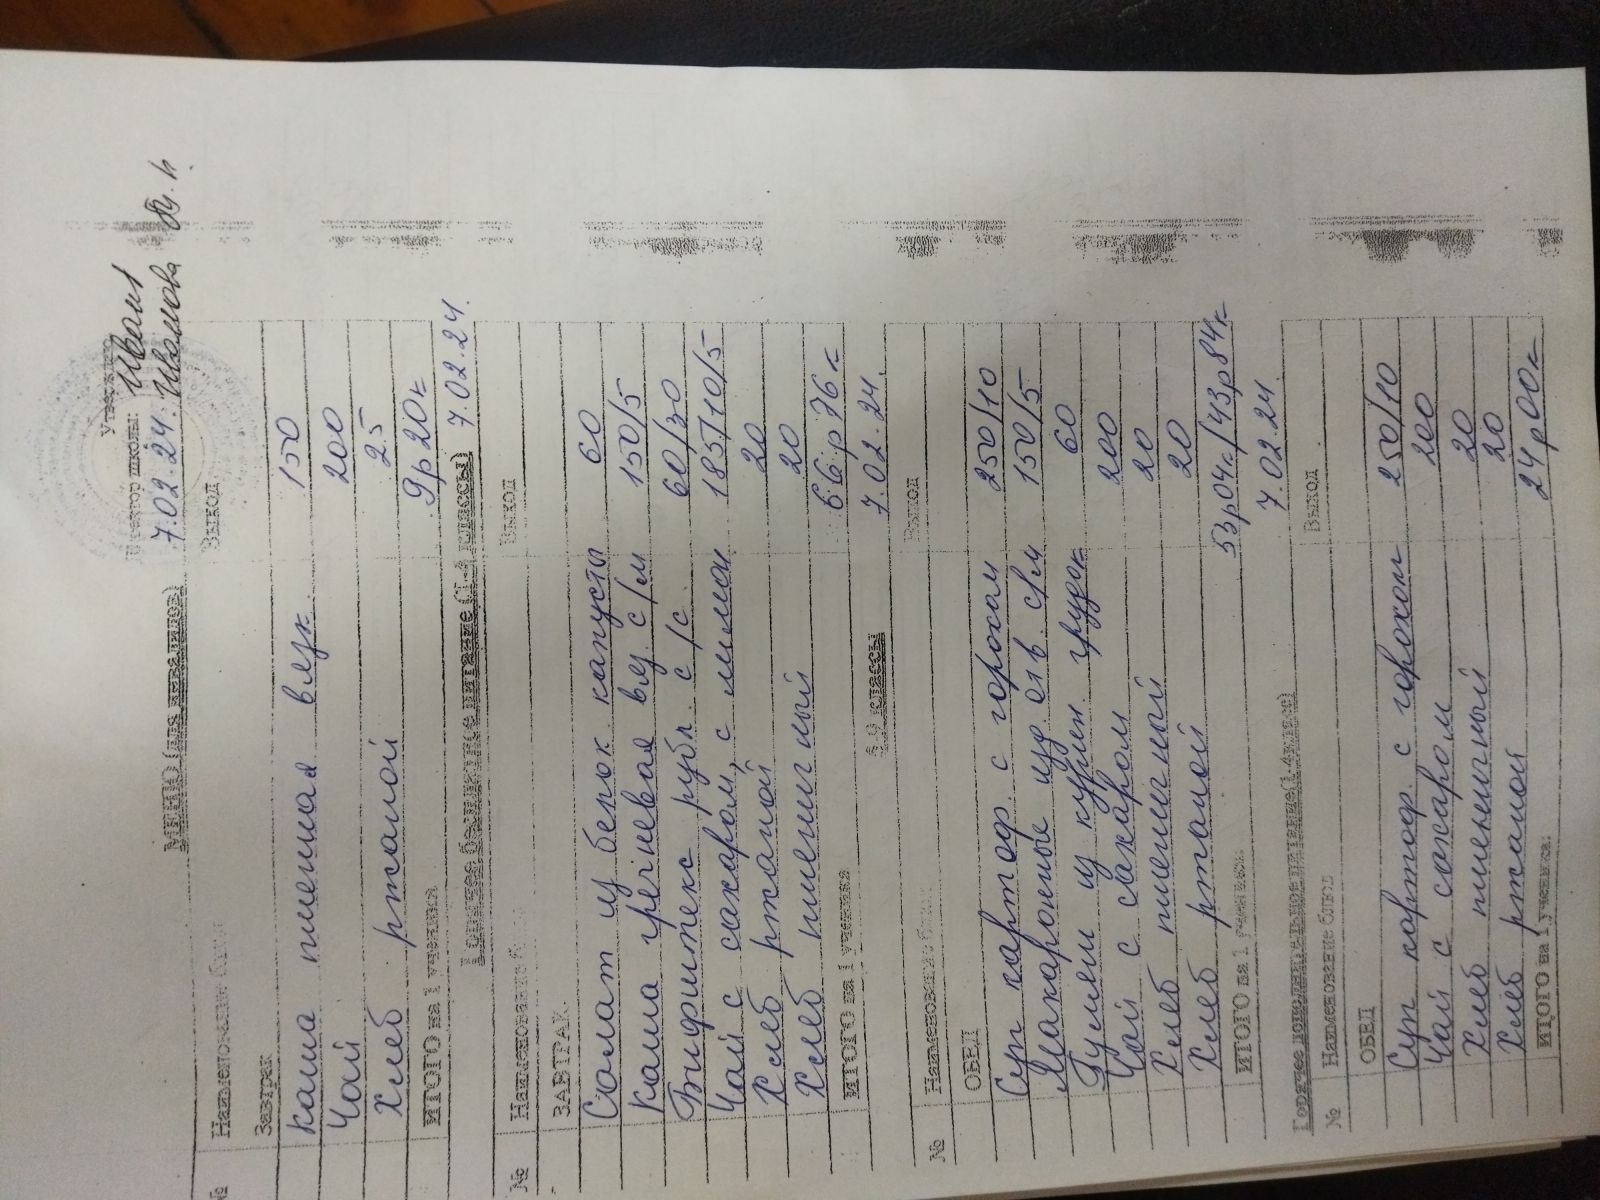 Утверждаю
Директор школы:
7.02.24.
МЕНЮ (для инвалидов)
№ Наименование блюд Выход
Завтрак
Каша пшенная вязк. 150
Чай 200
Хлеб ржаной 25
ИТОГО на 1 ученика 9р20к
Горячее бесплатное питание (1-4 классы) 7.02.24.
№ Наименование Выход
ЗАВТРАК
Салат из белок капусты 60
Каша гречневая вяз с/м 150/5
Бифштекс рубл. с/с. 60/30
Чай с сахаром, с лимон 185/10/5
Хлеб ржаной 20
Хлеб пшеничный 20
ИТОГО на 1 ученика 66р76к
классы 7.02.24.
№ Наименование блюд Выход
ОБЕД
Суп картоф. с горохом 250/10
Макаронные изд. отв. с/м 150/5
Гуляш из курин. грудок 60
Чай с сахаром 200
Хлеб пшеничный 20
Хлеб ржаной 20
ИТОГО на 1 ученика: 53р04к/43р84к
7.02.24.
Горячее дополнительное питание(1-4класс)
№ Наименование блюд Выход
ОБЕД
Суп картоф. с горохом 250/10
Чай с сахаром 200
Хлеб пшеничный 20
Хлеб ржаной 20
ИТОГО на 1 ученика: 24р00к